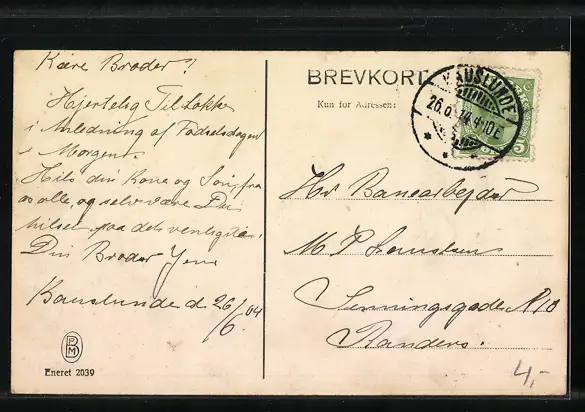 Kære Broder!
Hjertelig Til Lykke
i Anledning af Fødselsdagen
i Morgen.
Hils din Kone og fra
os alle, og selv være Du
hilset paa det venligste.
Din Broder Jens
Kauslunde d 26/6. 04
BPM
Eneret 2039
BREVKORT
Kun for Adressen:
KAUSLUNDE
Hr Banearbejder
M P
No 10
Randers.
4,-